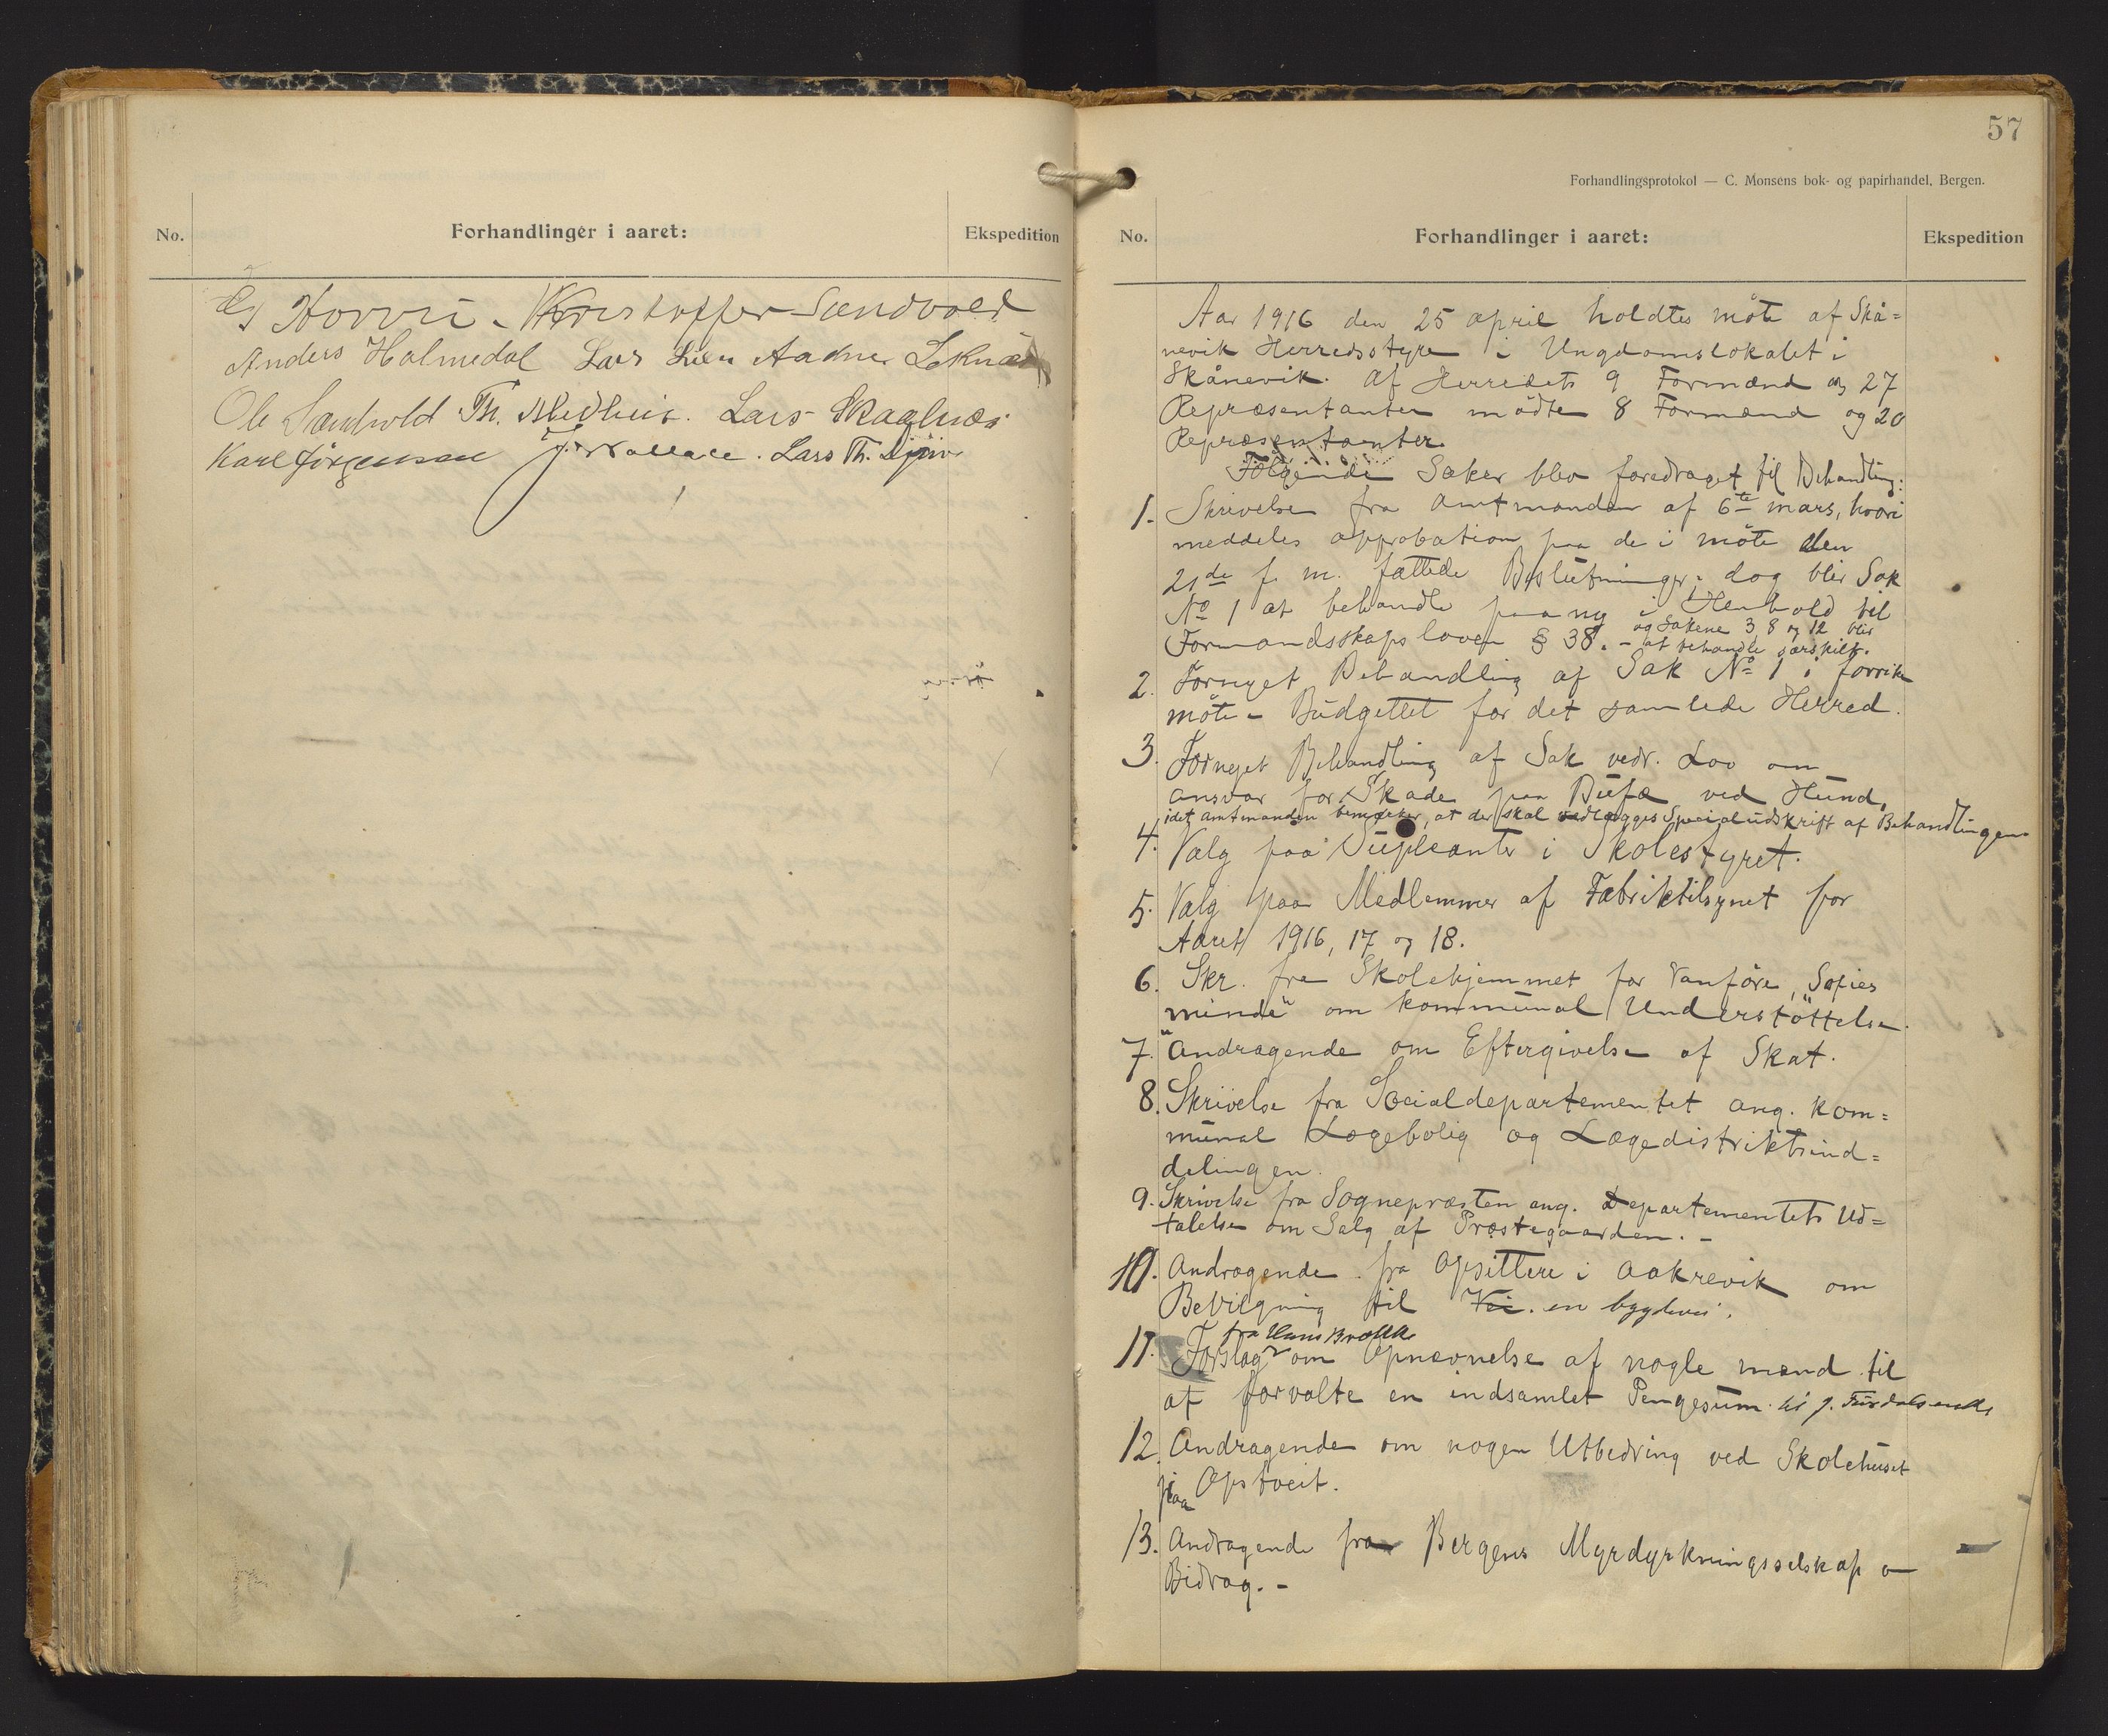 No.
Forhandlinger i aaret:
Ekspedition
Hovvi. Kristoffer Sandvold
Anders Halmedal Lars Lien Aadne Leknæs
Ole Sandvold Th. Medhus. Lars Skaalnæs
Karl Jörgensen J. Wallace. Lars Th. Djöiv
57
Forhandlingsprotokol — C. Monsens bok- og papirhandel, Bergen.
No.
Forhandlinger i aaret:
Ekspedition
Aar 1916 den 25 april holdtes möte af Skå=
nevik Herredsstyre i Ungdomslokalet i
Skånevik. Af Herredets 9 Formænd og 27
Repræsentanter mödte 8 Formænd og 20
Repræsentanter
Følgende Saker blev foredraget til Behandling:
1. Skrivelse fra Amtmanden af 6te mars, hvori
meddeles approbation paa de i möte den
21de f. m. fattede Beslutninger; dog blir Sak
No 1 at behandle paa ny i Henhold til
Formandsskapsloven § 38. - og Sakene 3 8 og 12 blir
at behandle særskilt.
2. Fornyet Behandling af Sak No 1 i forrike
möte - Budgettet for det samlede Herred.
3. Fornyet Behandling af Sak vedr. Lov om
ansvar for Skade paa Bufæ ved Hund,
idet amtmanden bemærker, at der skal vedlægges Specialudskrift af Behandlingen
4. Valg paa Supleanter i Skolestyret.
5. Valg paa Medlemmer af Fabriktilsynet for
Aaret 1916, 17 og 18.
6. Skr. fra Skolehjemmet for Vanföre, „Sofies
minde" om kommunal Understöttelse.
7. Andragende om Eftergivelse af Skat.
8. Skrivelse fra Socialdepartementet ang. kom=
munal Lægebolig og Lægedistriktsind=
delingen.
9. Skrivelse fra Sognepræsten ang. Departementets Ud=
talelse om Salg af Præstegaarden. -
10. Andragende fra Opsittere i Aakrevik om
Bevilgning til Vei. en bygdevei.
fra Hans Bratte
11. Forslag om Opnævnelse af nogle mænd til
at forvalte en indsamlet Pengesum til J.
12. Andragende om nogen Utbedring ved Skolehuset
paa Opstveit.
13. Andragende fra Bergens Myrdyrkningsselskap o
Bidrag. -